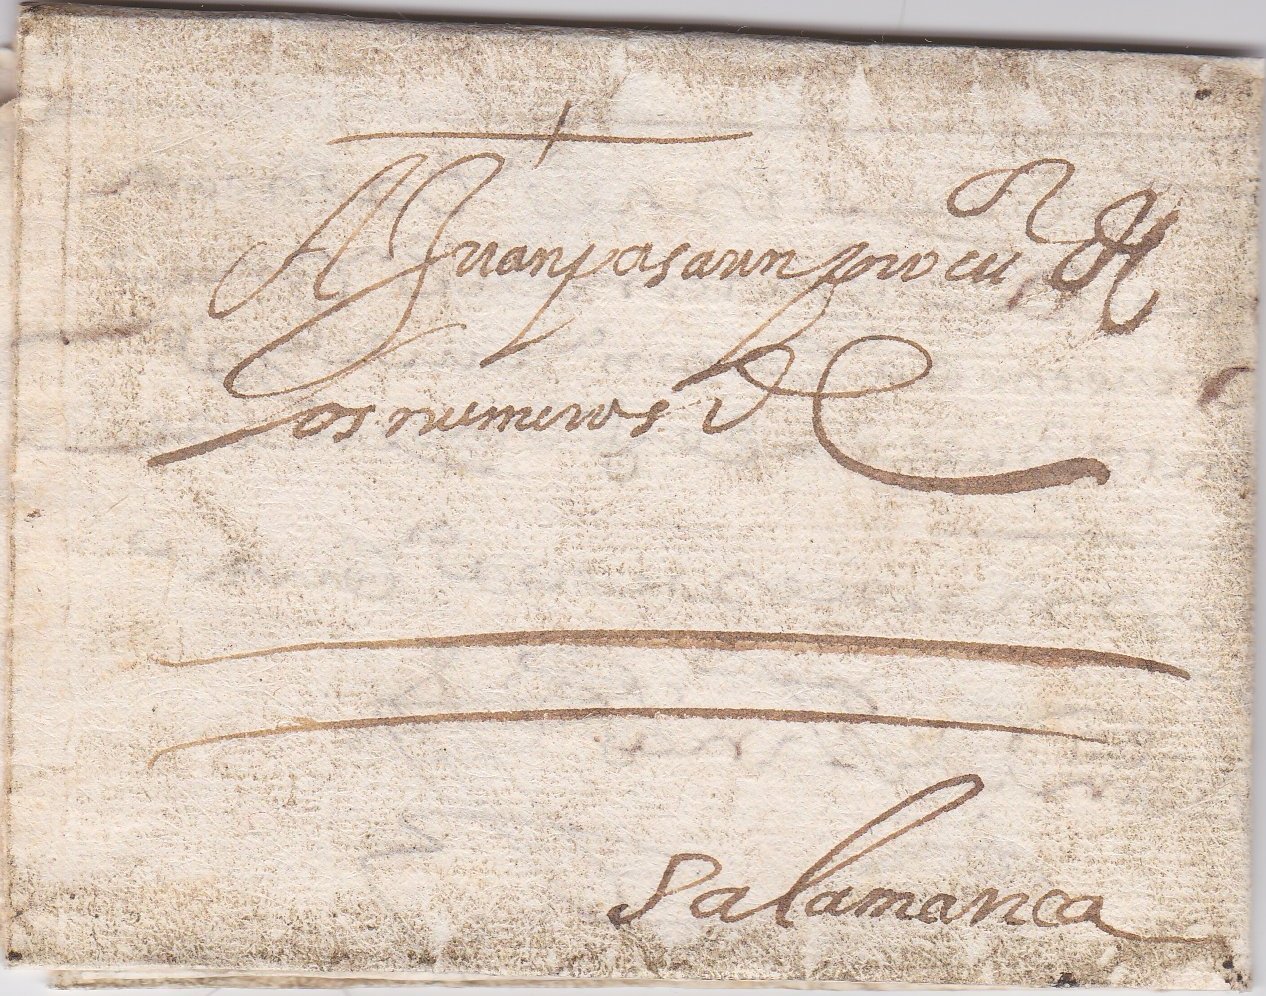 A Juan pasaun procu
os numeros de
Salamanca